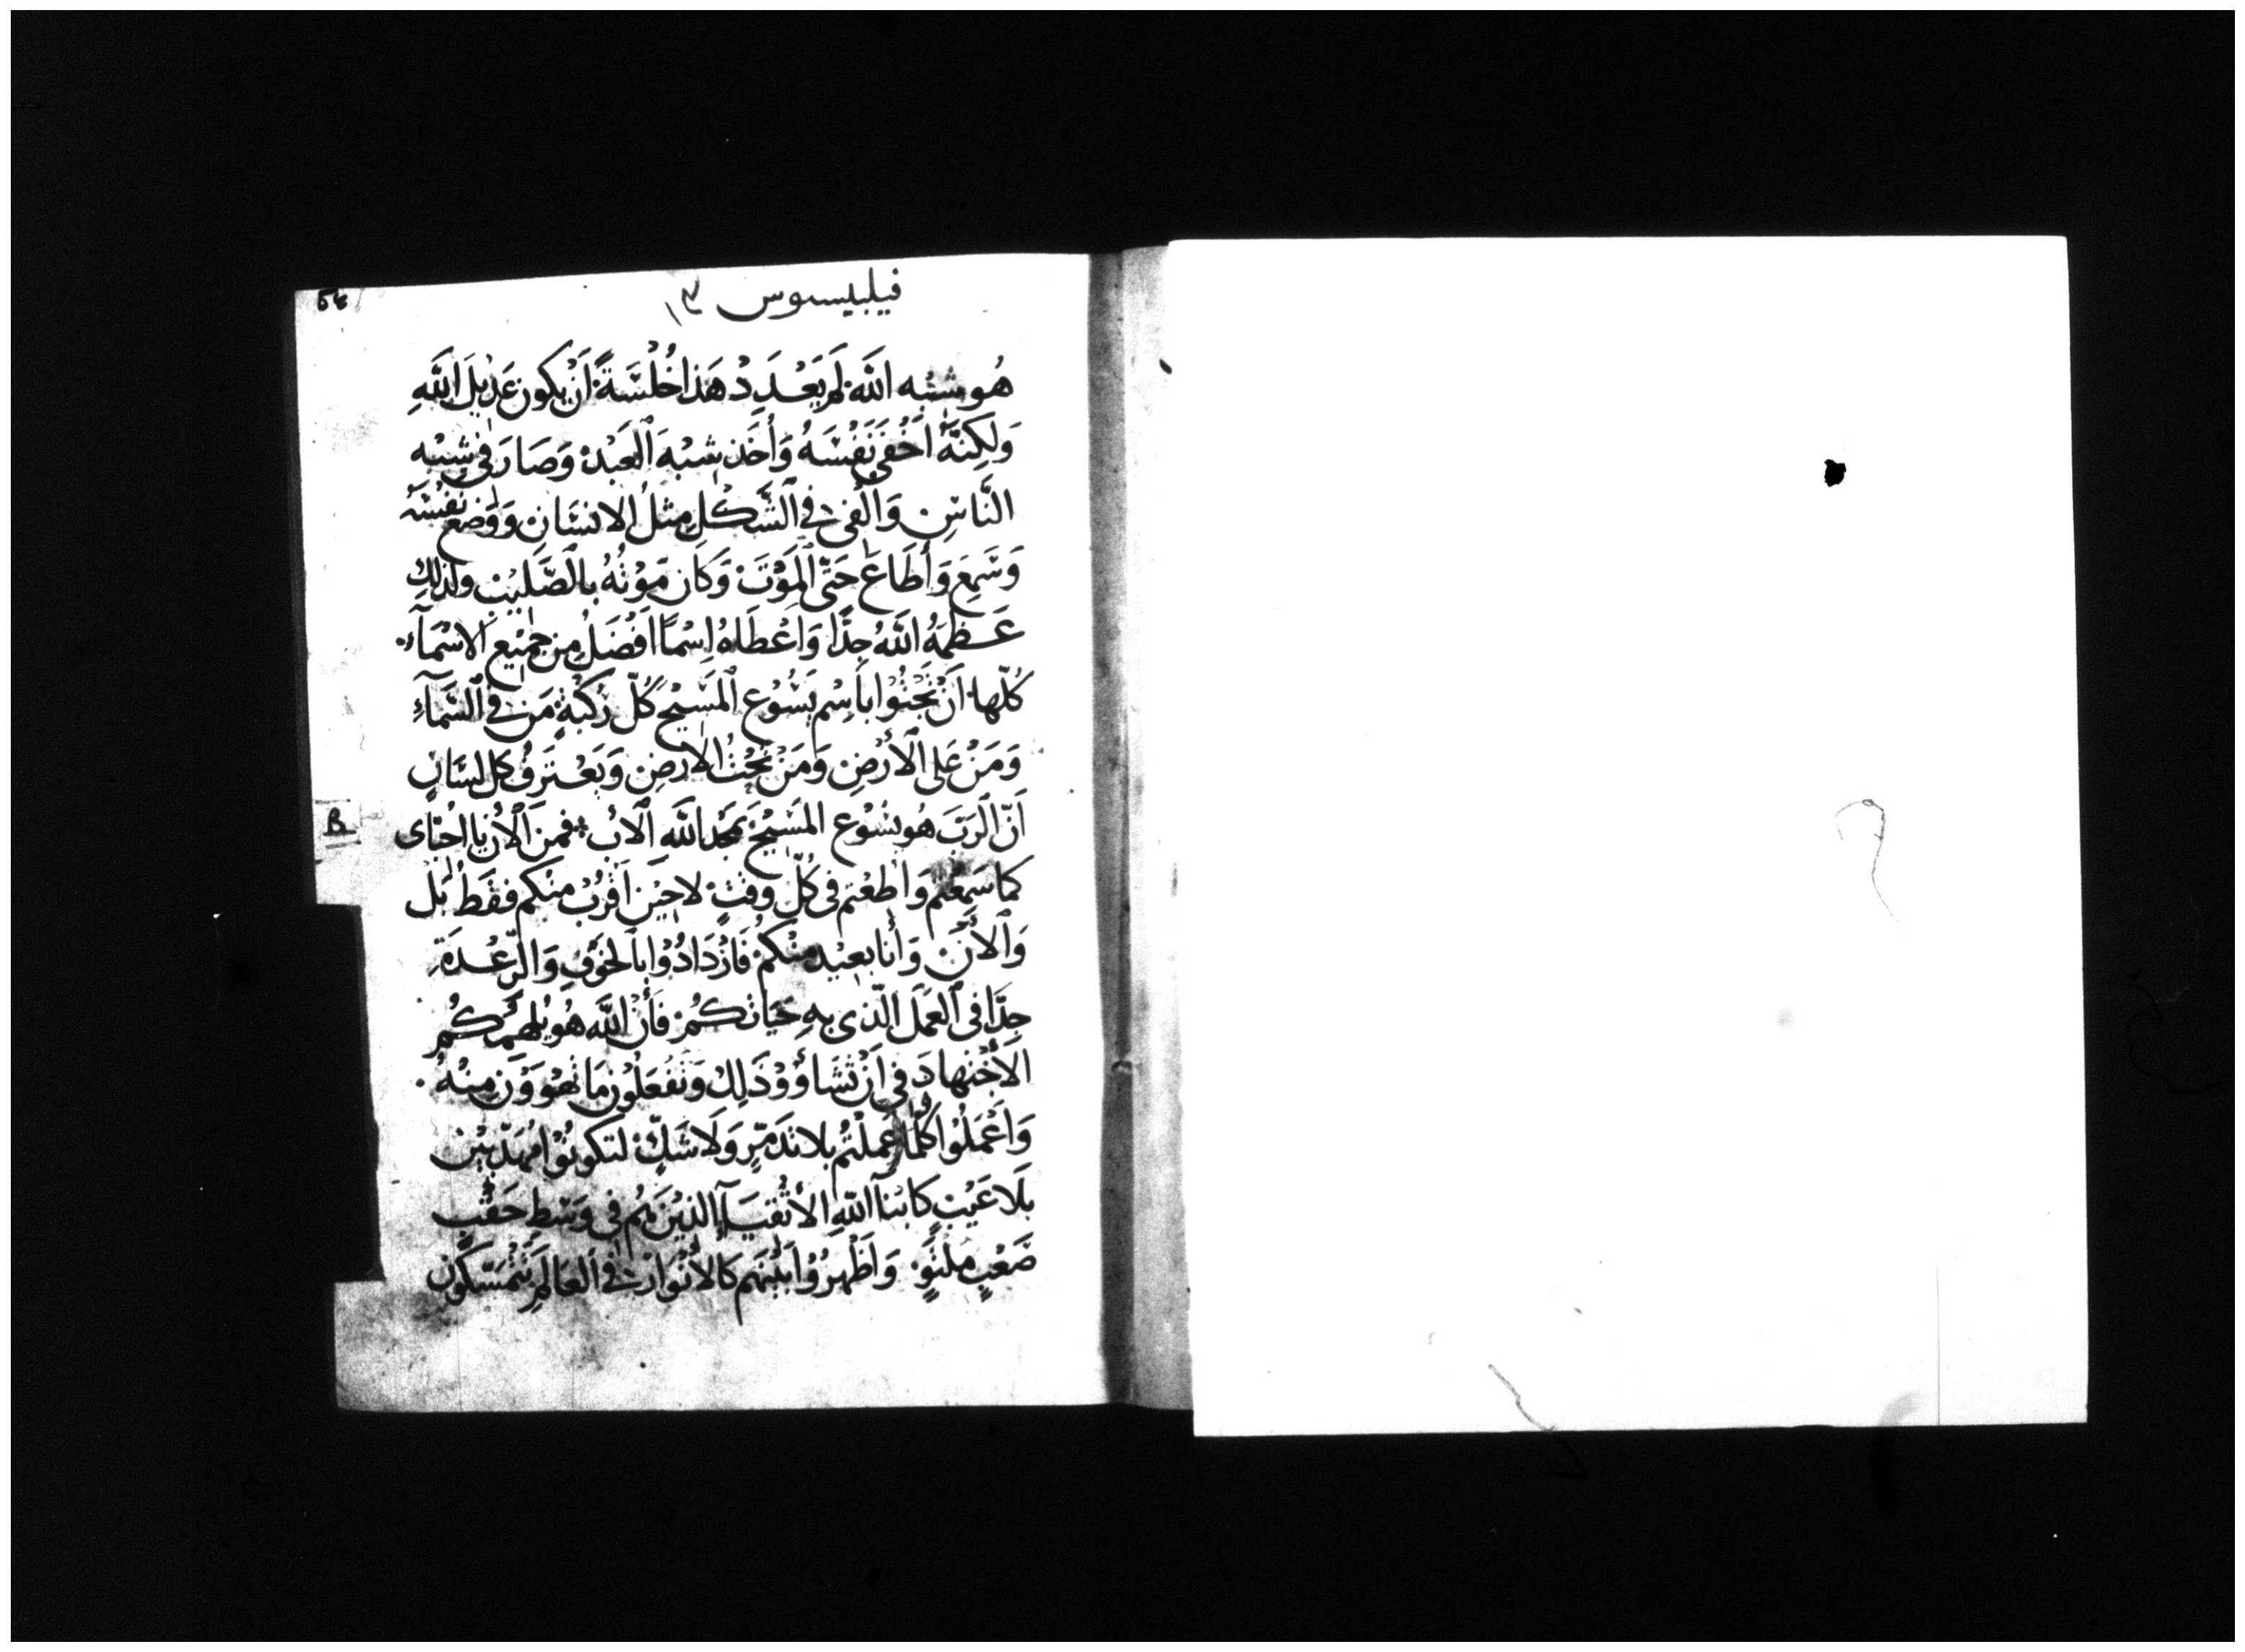 فيلبيسوس
هُو شبْه اللَّه لَم يَعْدَدِدْ هَذا خُلْسَةً أَنْ يَكون عَدِيْلَ اللَّهِ
وَلَكِنَّهُ أَخْفَى نَفْسَهُ وَأَخَذ شِبْهَ الْعَبْدْ وَصَارَ فِي شِبْهِ
النَّاسِ وَالْفِي فِي الشَّكْلِ مِثْلُ الانْسَانِ وَوَضَع نَفْسَهُ
وَسَمِعَ وَأَطَاعَ حَتَّى الْمَوْتَ وَكَان مَوْتُهُ بالصَّلِيْبِ ولذلِكَ
عَظَّمَهُ اللَّهُ جِدًّا وَاعْطَاهُ إِسْمًا افْضَلُ مِن جَمِيْعِ الاسْمَآءِ
كُلّها أَنْ تَجْثُوْا بِاسِم يَسُوْع الْمَسِيْح كُلّ رُكْبَةٍ مَن فِي السَّمَآءِ
وَمَنْ عَلى الْأَرْضِ وَمَنْ تَحْتُ الارْضِ وَيَعْتَرِفُ كل لسَانٍ
أَنّ الْرَبَّ هُو يَسُوْع المَسِيْحَ بَمْجدِ اللَّه الْابْ فمن الْأن يا احْبّاى
كما سَمِعْتم وَاطَعْتم فى كُلّ وقتٍ لا حِيْن أَقْرُبْ منكم فقَط بَلْ
وَالْأَنَ وَأَنا بعيْد منْكمْ فَأزْدَادُوْا بالخَوْفِ وَالرّعْدَةِ
جِدًّا فى الْعَمَل الَّذى بهِ حَيَاتكُمْ فَأَنّ اللَّه هُو يُلْهِمَكُمُ
الأَجْتهادَ فى أَنْ تَشَاؤُوْ ذَلِكْ وَتَفْعَلُون مَا تَهْوَوْن مِنْهُ
وَاَعْمَلُوْا كُلَّمَا عَمِلْتُم بلا تَذَمّرٍ وَلَا شَكٍّ لتكونُوْا مُهَذّبِيْن
بَلَا عَيْبٍ كابْنآ اللّهِ الأتْقيَآ الّذيْن هُم فى وَسْطِ حَقْبٍ
صَعْبٍ مُلتوٍ وَاَظْهرُوْا بَيْنَهم كالأنْوَارْ فِي الْعَالَمِ تَتْمَسّكُون
B